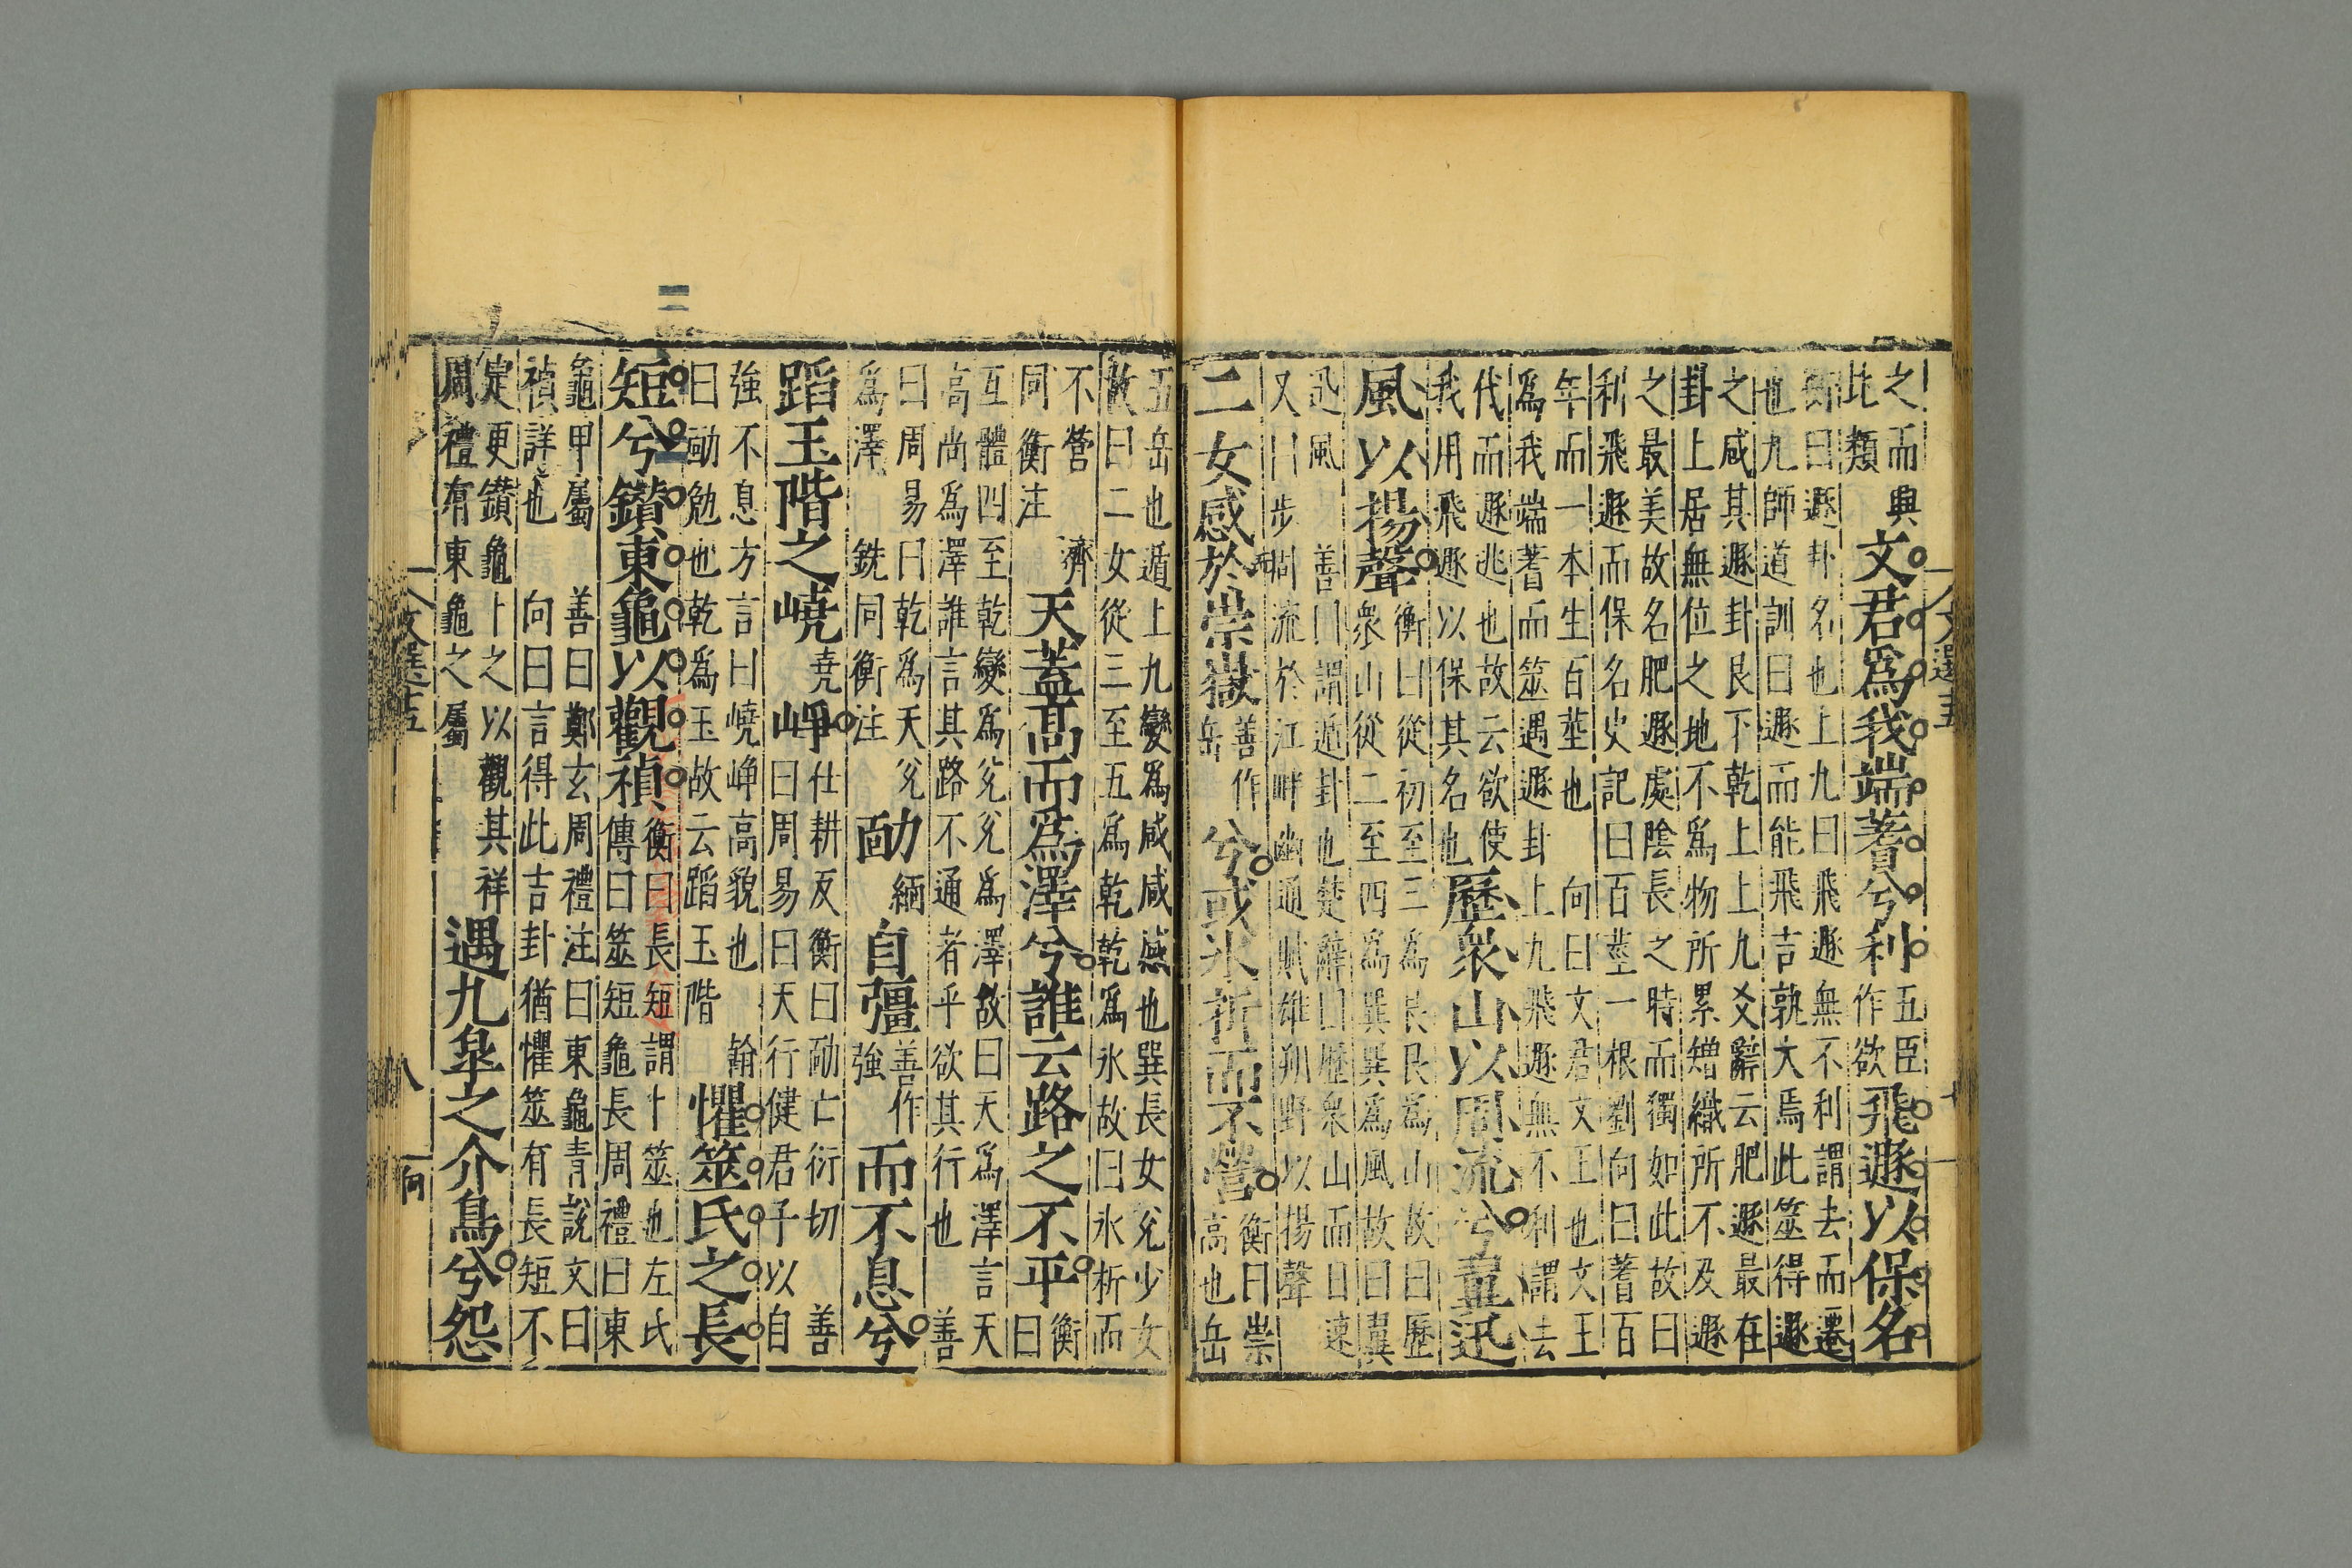 文選五
七
之而與
比類
文君爲我端蓍兮利
五臣
作欲
飛遯以保名
衡曰遯卦名也上九曰飛遯無不利謂去而遷
也九師道訓曰遯而能飛吉孰大焉此筮得遯
之咸其遯卦艮下乾上上九爻辭云肥遯最在
卦上居無位之地不爲物所累矰織所不及遯
之最美故名肥遯處陰長之時而獨如此故曰
利飛遯而保名史記曰百莖一根劉向曰蓍百
年而一本生百莖也 向曰文君文王也文王
爲我端蓍而筮遇遯卦上九飛遯無不利謂去
代而遯逃也故云欲使
我用飛遯以保其名也
歷衆山以周流兮翼迅
風以揚聲
衡曰從初至三爲艮艮爲山故曰歷
衆山從二至四爲巽巽爲風故曰翼
迅風 善曰謂遁卦也楚辭曰歷衆山而日遠
又曰步周流於江畔幽通賦雄朔野以揚聲
二女感於崇嶽
善作
岳
兮或氷折而不營
衡曰崇
高也岳
五岳也遁上九變爲咸咸感也巽長女兌少女
故曰二女從三至五爲乾乾爲氷故曰氷析而
不營 濟
同衡注
天蓋高而爲澤兮誰云路之不平
衡
曰
互體四至乾變爲兌兌爲澤故曰天爲澤言天
高尚爲澤誰言其路不通者乎欲其行也 善
曰周易曰乾爲天兌
爲澤 銑同衡注
勔
緬
自彊
善作
強
而不息兮
蹈玉階之嶢
堯
崢
仕耕反衡曰勔亡衍切 善
曰周易曰天行健君子以自
強不息方言曰嶢崢高貌也 翰
曰勔勉也乾爲玉故云蹈玉階
懼筮氏之長
短兮鑽東龜以觀禎
衡曰長短謂卜筮也左氏
傳曰筮短龜長周禮曰東
龜甲屬 善曰鄭玄周禮注曰東龜青說文曰
禎詳也 向曰言得此吉卦猶懼筮有長短不
定更鑽龜卜之以觀其祥
周禮有東龜之屬
遇九皐之介鳥兮怨
文選五
八
向